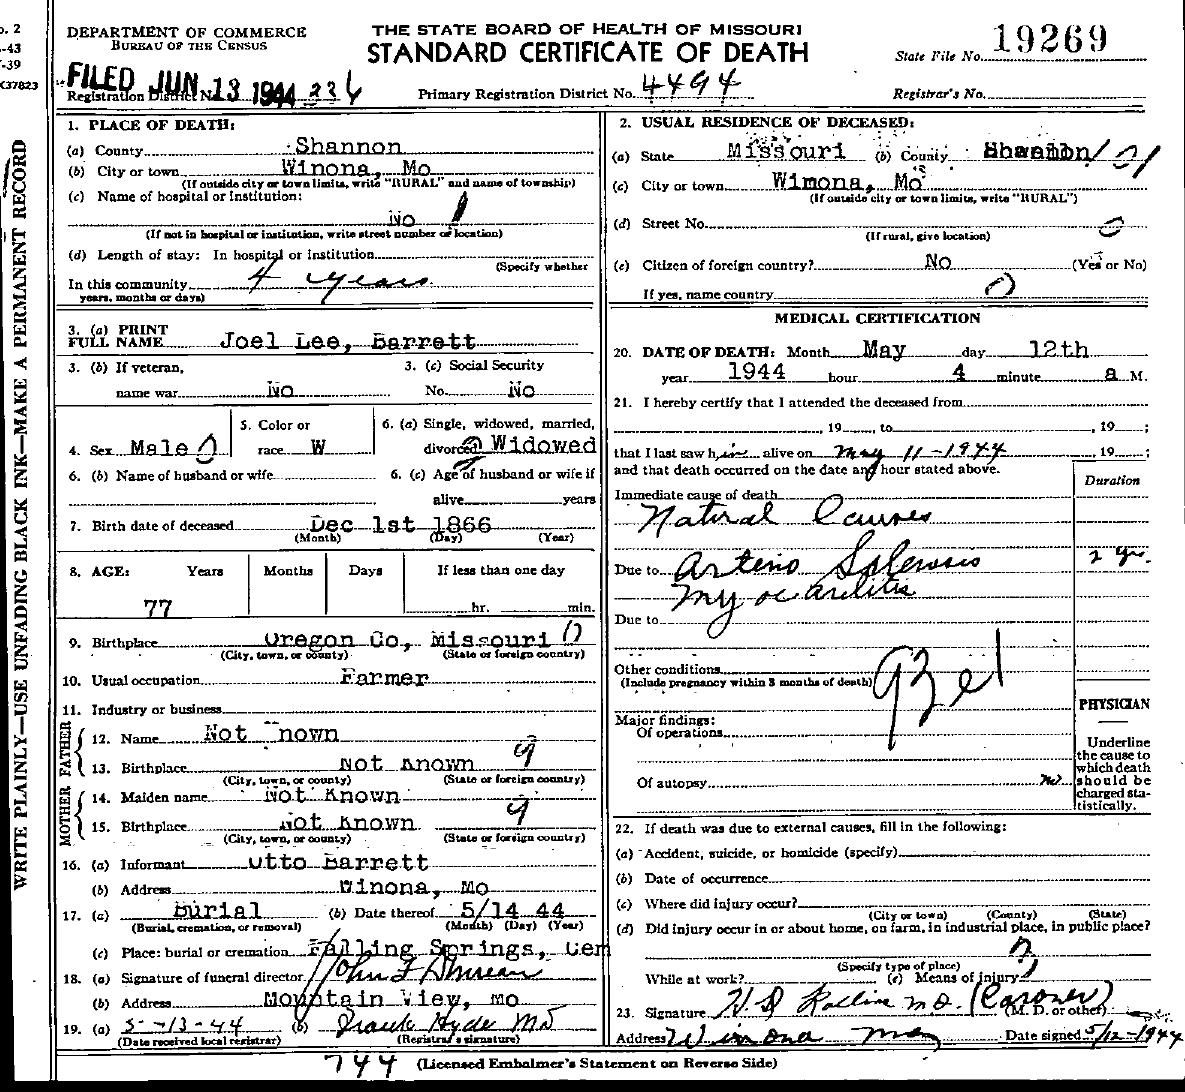 o. 2
-43
-39
X37823
WRITE PLAINLY—USE UNFADING BLACK INK—MAKE A PERMANENT RECORD
DEPARTMENT OF COMMERCE
BUREAU OF THE CENSUS
THE STATE BOARD OF HEALTH OF MISSOURI
STANDARD CERTIFICATE OF DEATH
State File No. 19269
FILED JUN 13 1944
Registration District No. 336
Primary Registration District No. 4494
Registrar's No.
1. PLACE OF DEATH:
(a) County Shannon
(b) City or town Winona, Mo
(If outside city or town limits, write "RURAL" and name of township)
(c) Name of hospital or institution:
No
(If not in hospital or institution, write street number or location)
(d) Length of stay: In hospital or institution
(Specify whether
In this community 4 years
years, months or days)
3. (a) PRINT
FULL NAME Joel Lee, Barrett
3. (b) If veteran,
name war No
3. (c) Social Security
No. No
4. Sex Male
5. Color or
race W
6. (a) Single, widowed, married,
divorced Widowed
6. (b) Name of husband or wife
6. (c) Age of husband or wife if
alive years
7. Birth date of deceased Dec 1st 1866
(Month) (Day) (Year)
8. AGE: Years Months Days If less than one day
77 hr. min.
9. Birthplace Oregon Co, Missouri 0
(City, town, or county) (State or foreign country)
10. Usual occupation Farmer
11. Industry or business
FATHER
12. Name Not nown
13. Birthplace Not Known 9
(City, town, or county) (State or foreign country)
MOTHER
14. Maiden name Not Known
15. Birthplace Not Known 9
(City, town, or county) (State or foreign country)
16. (a) Informant Otto Barrett
(b) Address Winona, Mo
17. (a) Burial (b) Date thereof 5/14 44
(Burial, cremation, or removal) (Month) (Day) (Year)
(c) Place: burial or cremation Falling Springs, Cem
18. (a) Signature of funeral director John F Duncan
(b) Address Mountain View, Mo
19. (a) 5-13-44 (b) Frank Hyde MD
(Date received local registrar) (Registrar's signature)
2. USUAL RESIDENCE OF DECEASED:
(a) State Missouri (b) County Shannon
(c) City or town Wimona, Mo
(If outside city or town limits, write "RURAL")
(d) Street No. 0
(If rural, give location)
(e) Citizen of foreign country? No (Yes or No)
If yes, name country 0
MEDICAL CERTIFICATION
20. DATE OF DEATH: Month May day 12th
year 1944 hour 4 minute a M.
21. I hereby certify that I attended the deceased from
, 19 , to , 19 ;
that I last saw him alive on May 11-1944 , 19 ;
and that death occurred on the date and hour stated above.
Duration
Immediate cause of death
Natural Causes
Due to Arterio Sclerosis 2 yr.
Myocarditis
Due to
Other conditions
(Include pregnancy within 3 months of death)
Major findings:
Of operations
Of autopsy no
PHYSICIAN
Underline
the cause to
which death
should be
charged sta-
tistically.
22. If death was due to external causes, fill in the following:
(a) Accident, suicide, or homicide (specify)
(b) Date of occurrence
(c) Where did injury occur?
(City or town) (County) (State)
(d) Did injury occur in or about home, on farm, in industrial place, in public place?
(Specify type of place)
While at work? (e) Means of injury
23. Signature H D Rollins MD. (Coroner)
(M. D. or other)
Address Winona Mo Date signed 5/12-1944
744 (Licensed Embalmer's Statement on Reverse Side)